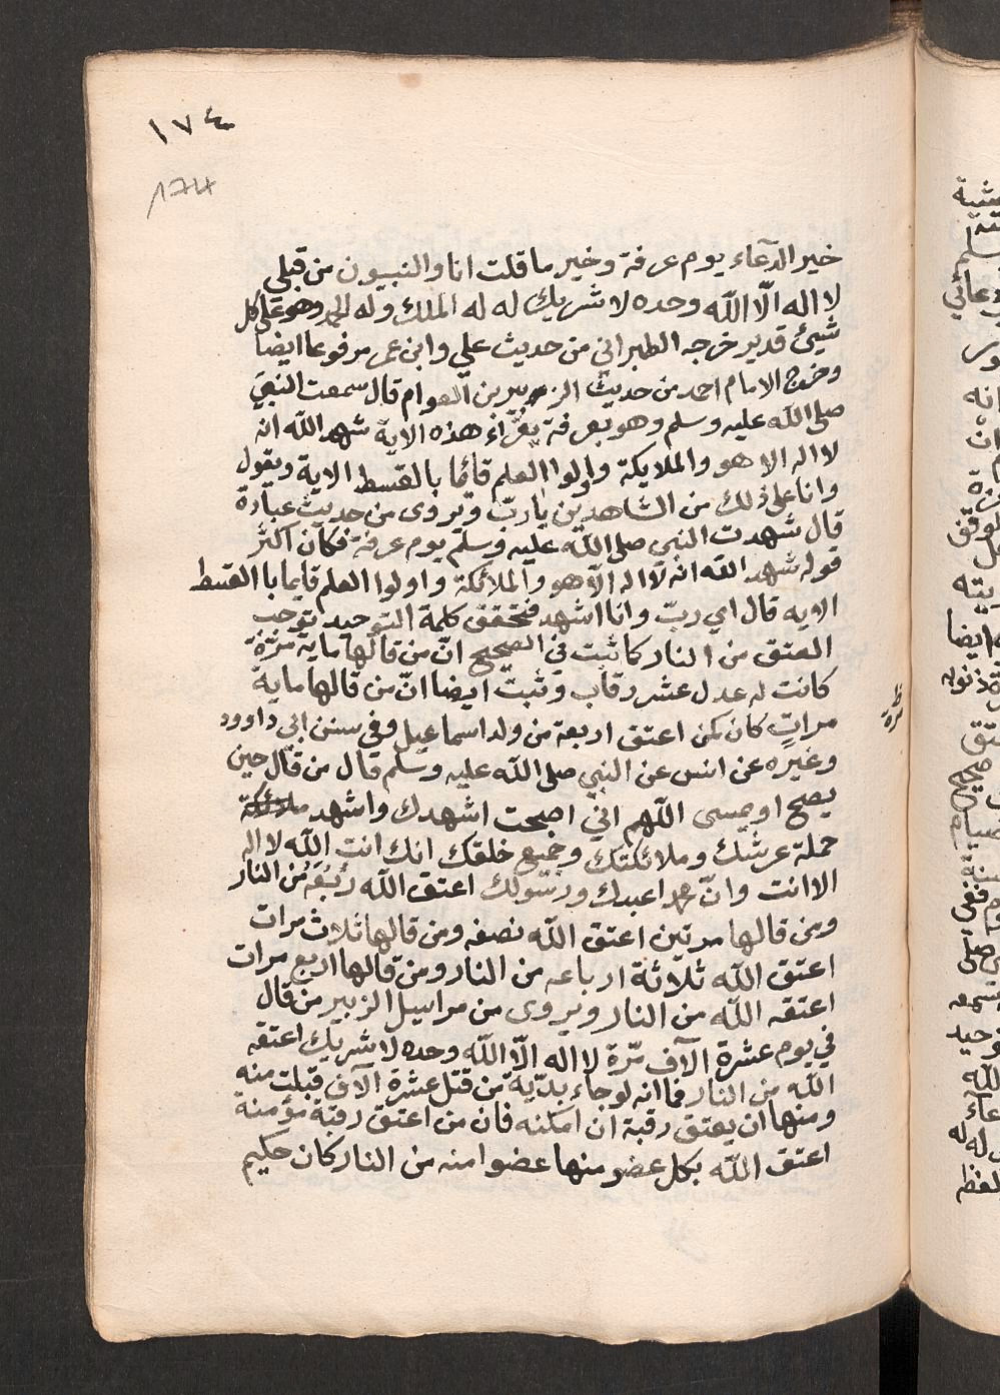 ١٧٤
174
خير الدعاء يوم عرفة وخير ما قلت انا والنبيون من قبلي
لا اله الّا اللّه وحده لا شريك له له الملك وله الحمد وهو على كل
شيئ قدير خرجه الطبراني من حديث علي وابن عمر مرفوعا ايضا
وخرج الامام احمد من حديث الزبير بن العوام قال سمعت النبي
صلى اللّه عليه وسلم وهو بعرفة يقراء هذه الاية شهد اللّه انه
لا اله الا هو والملايكة واولوا العلم قائما بالقسط الاية ويقول
وانا على ذلك من الشاهدين يا ربّ ويروى من حديث عبادة
قال شهدت النبي صلى اللّه عليه وسلم يوم عرفة فكان اكثر
قوله شهد اللّه انه لا اله الّا هو والملائكة واولوا العلم قايما با القسط
الايه قال اي ربّ وانا اشهد فتحقق كلمة التوحيد توجب
العتق من النار كما ثبت في الصحيح انّ من قالها ماية مرّة
كانت له عدل عشر رقاب وثبت ايضا انّ من قالها ماية
مراتٍ كان كمن اعتق اربعة من ولد اسماعيل وفي سنن ابي داوود
وغيره عن انس عن النبي صلى اللّه عليه وسلم قال من قال حين
يصبح او يمسى اللّهم انّي اصبحت اشهدك واشهد
حملة عرشك وملائكتك وجميع خلقك انك انت اللّه لا اله
الا انت وانّ محمدا عبدك ورسولك اعتق اللّه ربعه من النار
ومن قالها مرتين اعتق اللّه نصفه ومن قالها ثلاث مرات
اعتق اللّه ثلاثة ارباعه من النار ومن قالها اربع مرات
اعتقه اللّه من النار ويروى من مراسيل الزبير من قال
في يوم عشرة الآف مرّة لا اله الّا اللّه وحده لا شريك اعتقه
اللّه من النار فما انه لو جاء بديّة من قتل عشرة الآف قبلت منه
ومنها ان يعتق رقبة ان امكنه فان من اعتق رقبة مؤمنة
اعتق اللّه بكل عضو منها عضوا منه من النار كان حكيم